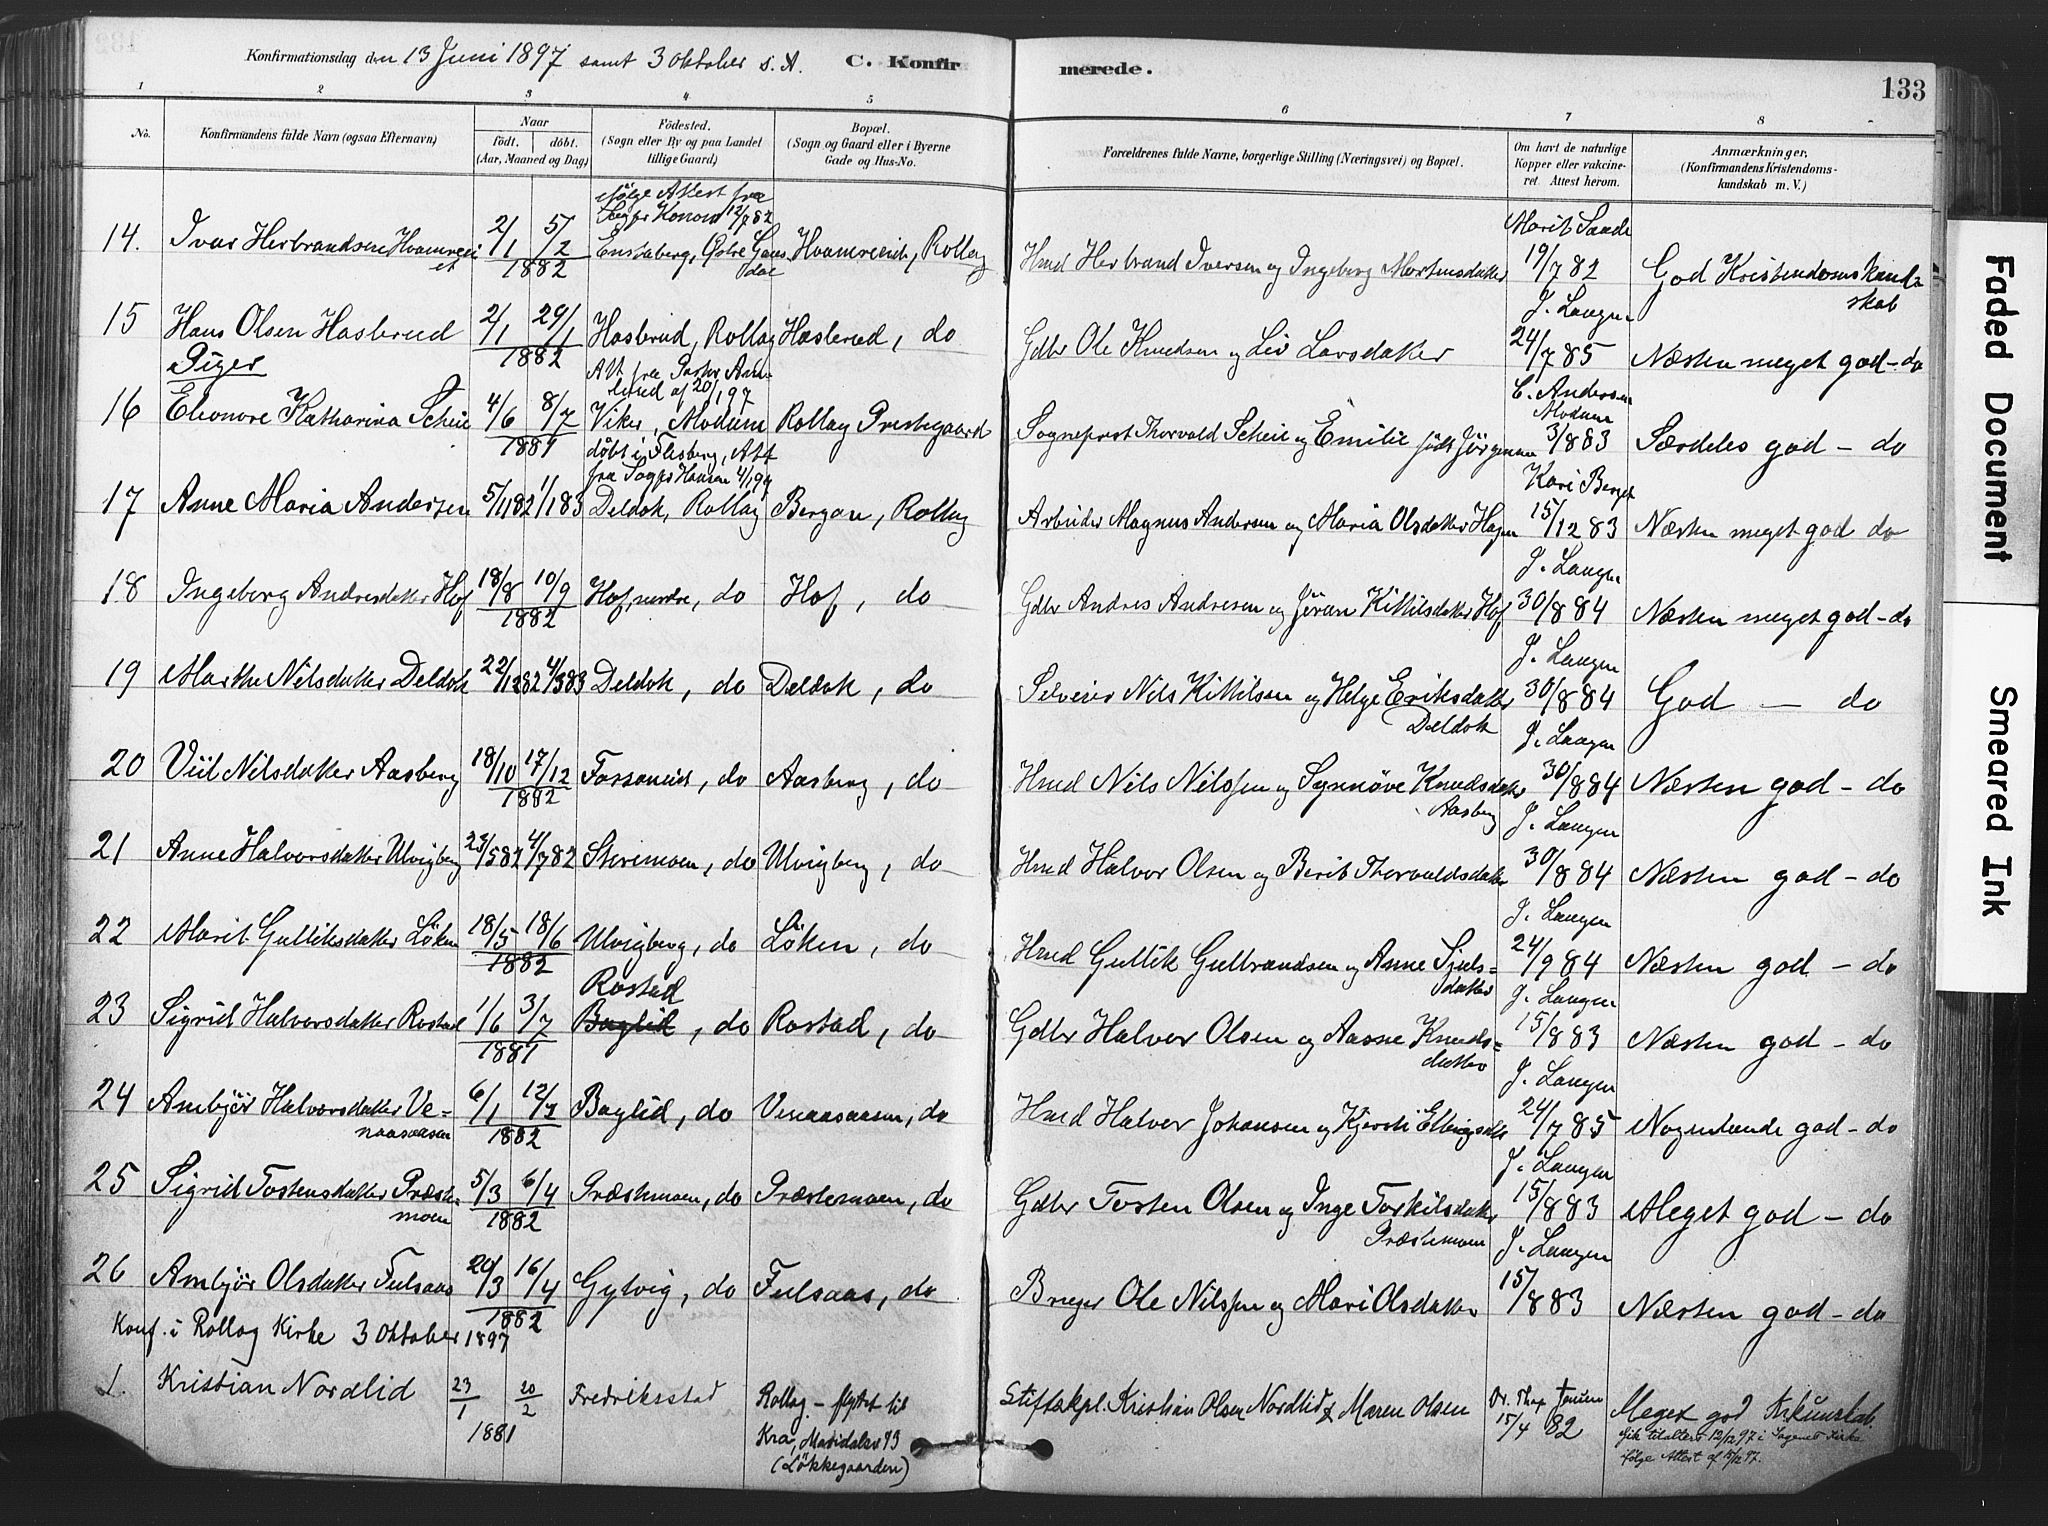 Konfirmationsdag den 13 Juni 1897 samt 3 Oktober s. A. C. Konfirmerede. 133
1 2 3 4 5 6 7 8
No. Konfirmandens fulde Navn (ogsaa Efternavn) Naar født. døbt. (Aar, Maaned og Dag) Fødested. (Sogn eller By og paa Landet tillige Gaard) Bopæl. (Sogn og Gaard eller i Byerne Gade og Hus-No. Forældrenes fulde Navne, borgerlige Stilling (Næringsvei) og Bopæl. Om havt de naturlige Kopper eller vakcineret. Attest herom. Anmærkninger. (Konfirmandens Kristendomskundskab m. V.)
ifølge Attest fra
Sogpr Konow 12/7 82 Marit Sande
14. Ivar Herbrandsen Hvamreiet 2/1 5/2 1882 Enstaberg, Østre Gausdal Hvamreiet, Rollag Hmd Herbrand Iversen og Ingeborg Mortensdatter 19/7 82 God Kristendomskundskab
J. Langen
15 Hans Olsen Hasberud 2/1 29/1 1882 Hasberud, Rollag Hasberud, do Gdbr Ole Knudsen og Liv Larsdatter 24/7 85 Næsten meget god - do
Piger
Att fra Pastor
af 20/1 97 C. Andersen Modum
16 Eleonore Katharina Scheie 4/6 8/7 1881 Viker, Modum Rollag Prestegaard Sogneprest Thorvald Scheie og Emilie født Jørgensen 3/8 83 Særdeles god - do
døbt i Flesberg, Att
fra Sogpr Hansen 4/1 97 Kari Berget
17 Anne Maria Andersen 5/11 82 1/1 83 Deldok, Rollag Bergan, Rollag Arbeider Magnus Andersen og Maria Olsdatter Hagen 15/12 83 Næsten meget god do
J. Langen
18 Ingeborg Andresdatter Hof 18/8 10/9 1882 Hof nordre, do Hof, do Gdbr Andres Andresen og Jøran Kittilsdatter Hof 30/8 84 Næsten meget god - do
J. Langen
19 Marthe Nilsdatter Deldok 22/12 82 4/3 83 Deldok, do Deldok, do Selveier Nils Kittilsen og Helge Eriksdatter Deldok 30/8 84 God - do
J. Langen
20 Viil Nilsdatter Aasberg 18/10 17/12 1882 Fossaneiet, do Aasberg, do Hmd Nils Nilssen og Synnøve Knudsdatter Aasberg 30/8 84 Næsten god - do
J. Langen
21 Anne Halvorsdatter Ulvigberg 23/5 82 4/7 82 Steremoen, do Ulvigberg, do Hmd Halvor Olsen og Berit Thorvaldsdatter 30/8 84 Næsten god - do
J. Langen
22 Marit Gulliksdatter Løken 18/5 18/6 1882 Ulvigberg, do Løken, do Hmd Gullik Gulbrandsen og Anne Sjulsdatter 24/9 84 Næsten god - do
Rostad J. Langen
23 Sigrid Halvorsdatter Rostad 1/6 3/7 1881 Baglid, do Rostad, do Gdbr Halvor Olsen og Aasne Knudsdatter 15/8 83 Næsten god - do
J. Langen
24 Ambjør Halvorsdatter Venaasaasen 6/1 12/2 1882 Baglid, do Venaasaasen, do Hmd Halvor Johansen og Kjersti Ellingsdtr 24/7 85 Nogenlunde god - do
J. Langen
25 Sigrid Tostensdatter Præstemoen 5/3 6/4 1882 Præstemoen, do Præstemoen, do Gdbr Tosten Olsen og Inge Torkilsdatter Præstemoen 15/8 83 Meget god - do
J. Langen
26 Ambjør Olsdatter Fulsaas 20/3 16/4 1882 Gytvig, do Fulsaas, do Bruger Ole Nilssen og Mari Olsdatter 15/8 83 Næsten god - do
Konf. i Rollag Kirke 3 Oktober 1897
1. Kristian Nordlid 23/1 20/2 1881 Fredriksstad Rollag - flyttet til Kra, Maridalsv 93 (Løkkegaarden) Stiftskpl. Kristian Olsen Nordlid & Maren Olsen Dr. Jensen 15/4 82 Meget god Krkundskab.
Gik tilalters 12/12 97 i Sagenes Kirke
ifølge Attest af
Faded Document
Smeared Ink